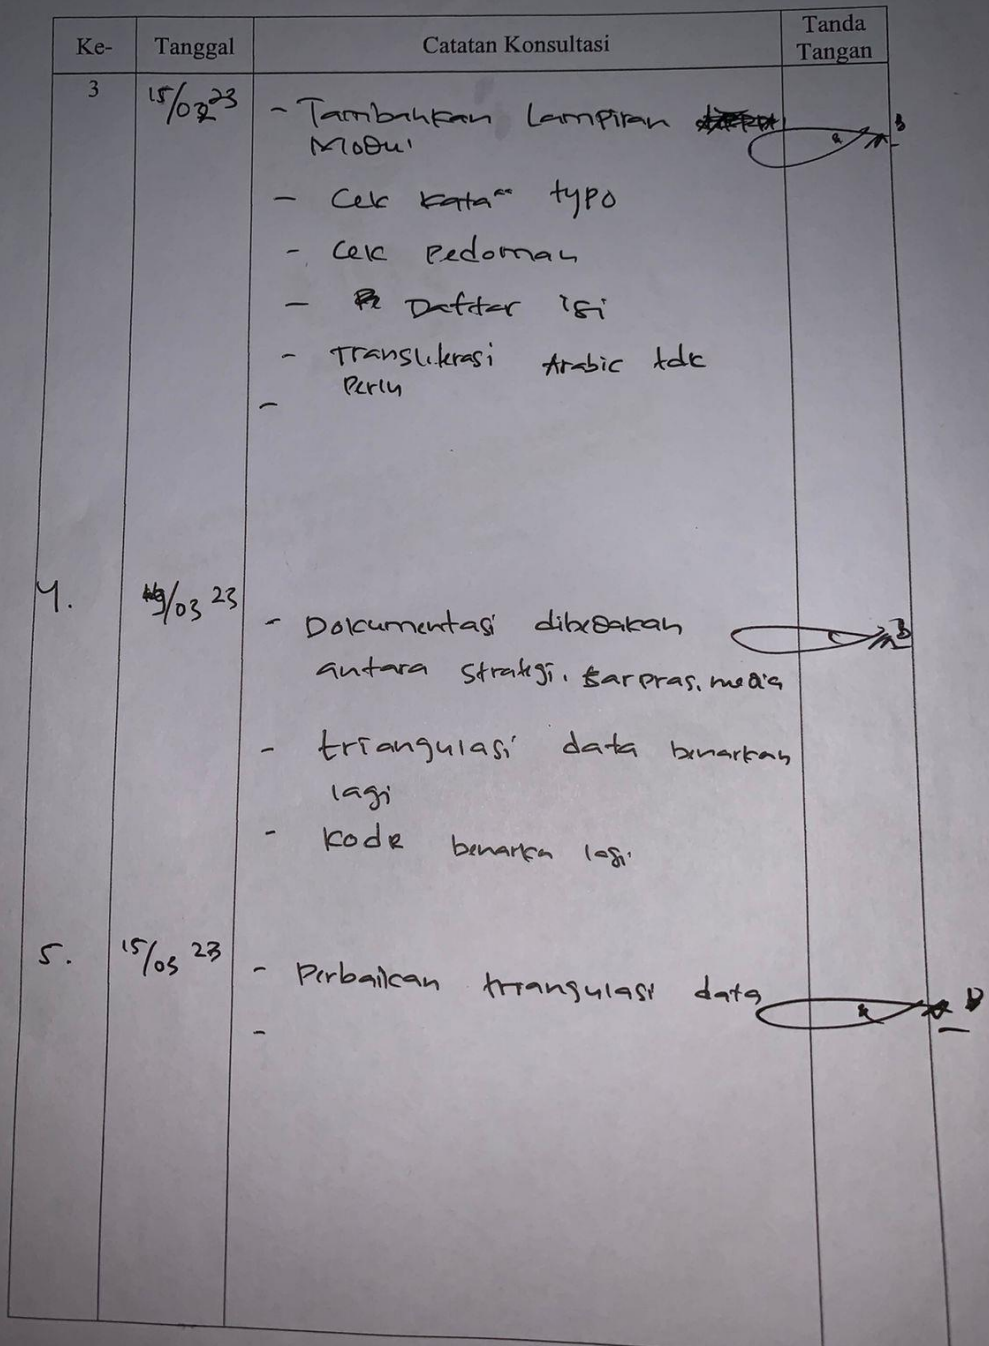 Ke- Tanggal Catatan Konsultasi Tanda Tangan
3 15/03 23 - Tambahkan Lampiran
Modul
- Cek kata" typo
- Cek Pedoman
- Daftar isi
- Transliterasi Arabic tdk
Perlu
-
4. /03 23
- Dokumentasi dibedakan
antara strategi, sarpras, media
- triangulasi data benarkan
lagi
- Kode benarkn lagi
5. 15/05 23 - Perbaikan triangulasi data
-